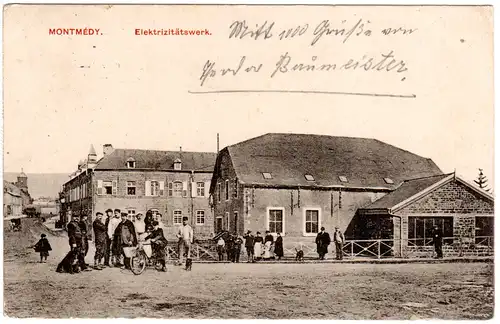 MONTMÉDY. Elektrizitätswerk.
Mitt 1000 Grüße von
Baumeister.